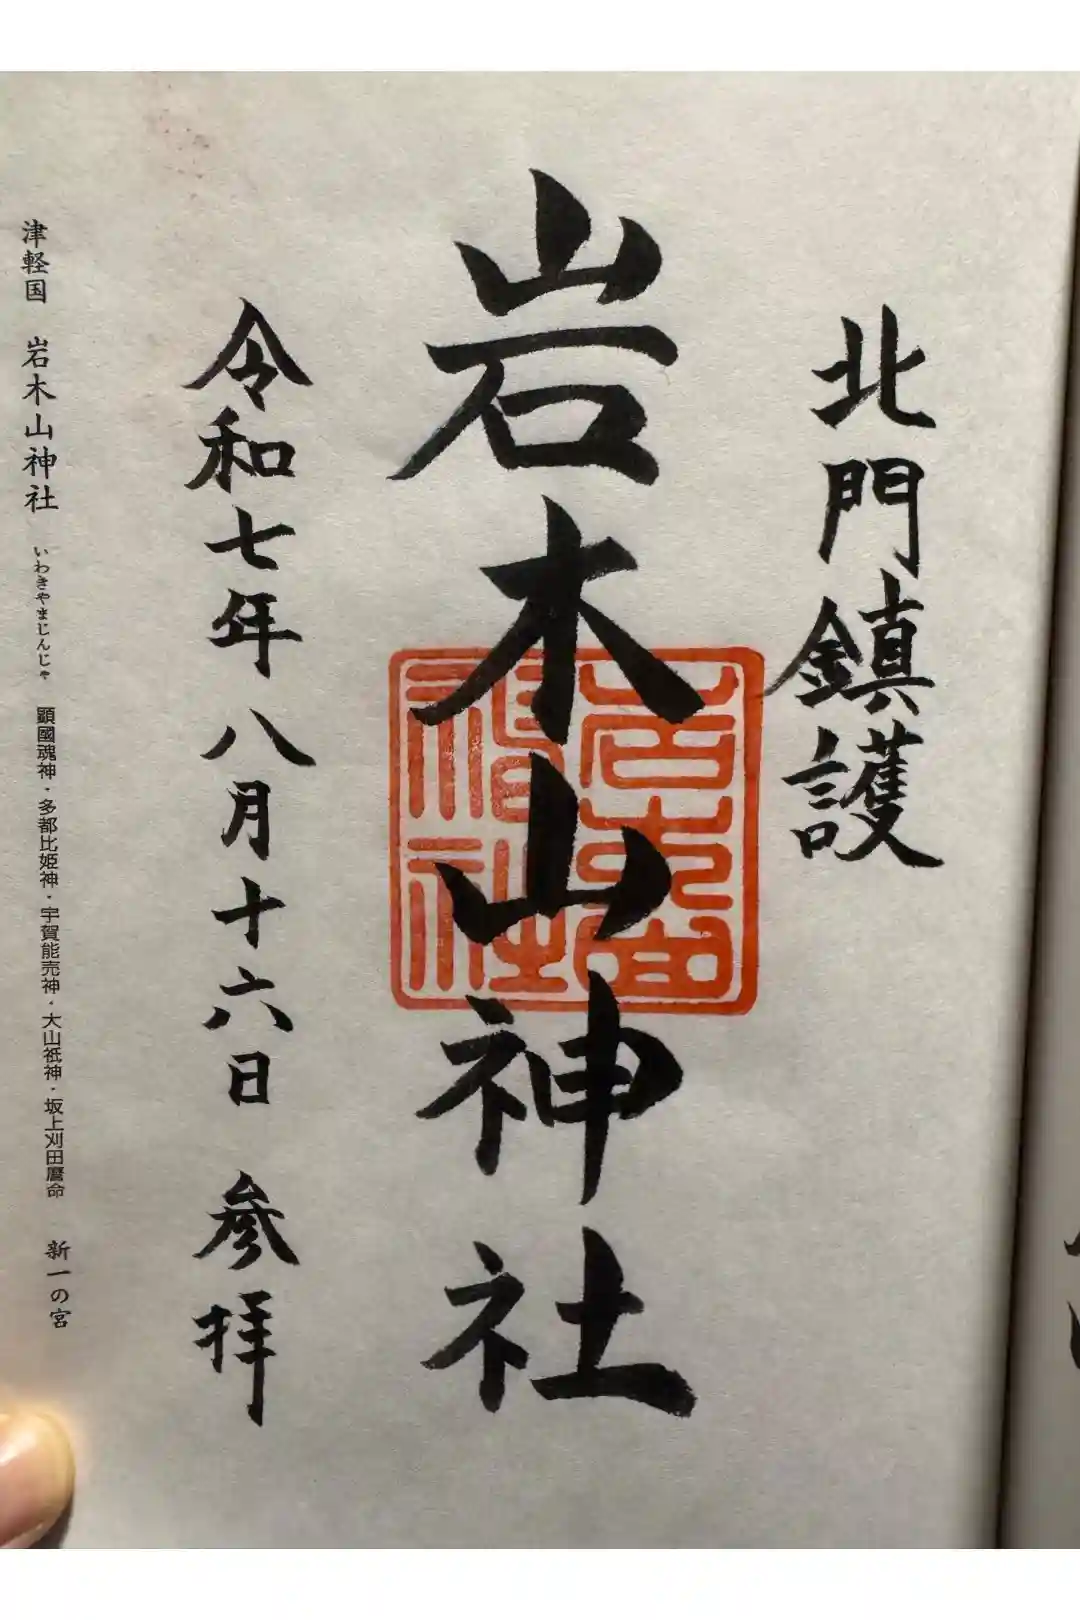 北門鎮護
岩木山神社
岩木山神社
令和七年八月十六日 參拝
津軽国 岩木山神社 いわきやまじんじゃ 顕國魂神・多都比姫神・宇賀能売神・大山祇神・坂上刈田麿命 新一の宮